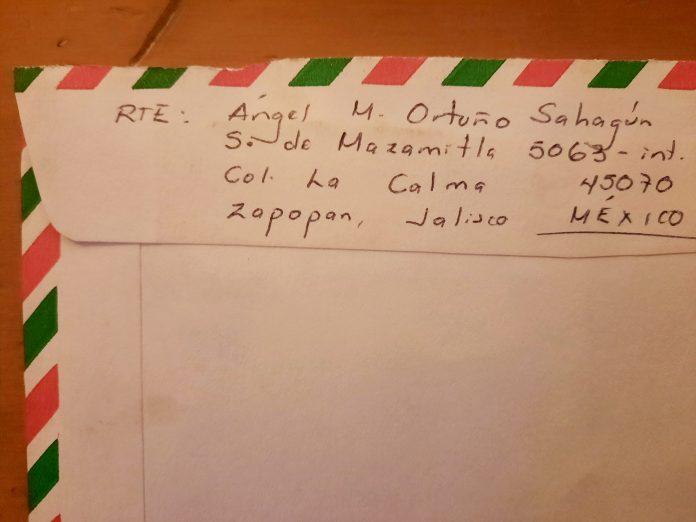 RTE: Ángel M. Ortuño Sahagún
S. de Mazamitla 5063-int.
Col. La Calma 45070
Zapopan, Jalisco MÉXICO